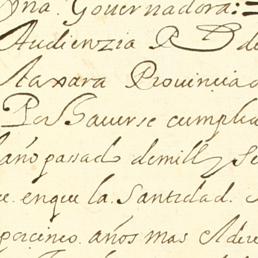 yna Governadora:=
Audienzia R^l de
Navarra Provincia
Por Haverse cumplid
año passado de mill y se
en que la Santidad.
por cinco años mas el dere